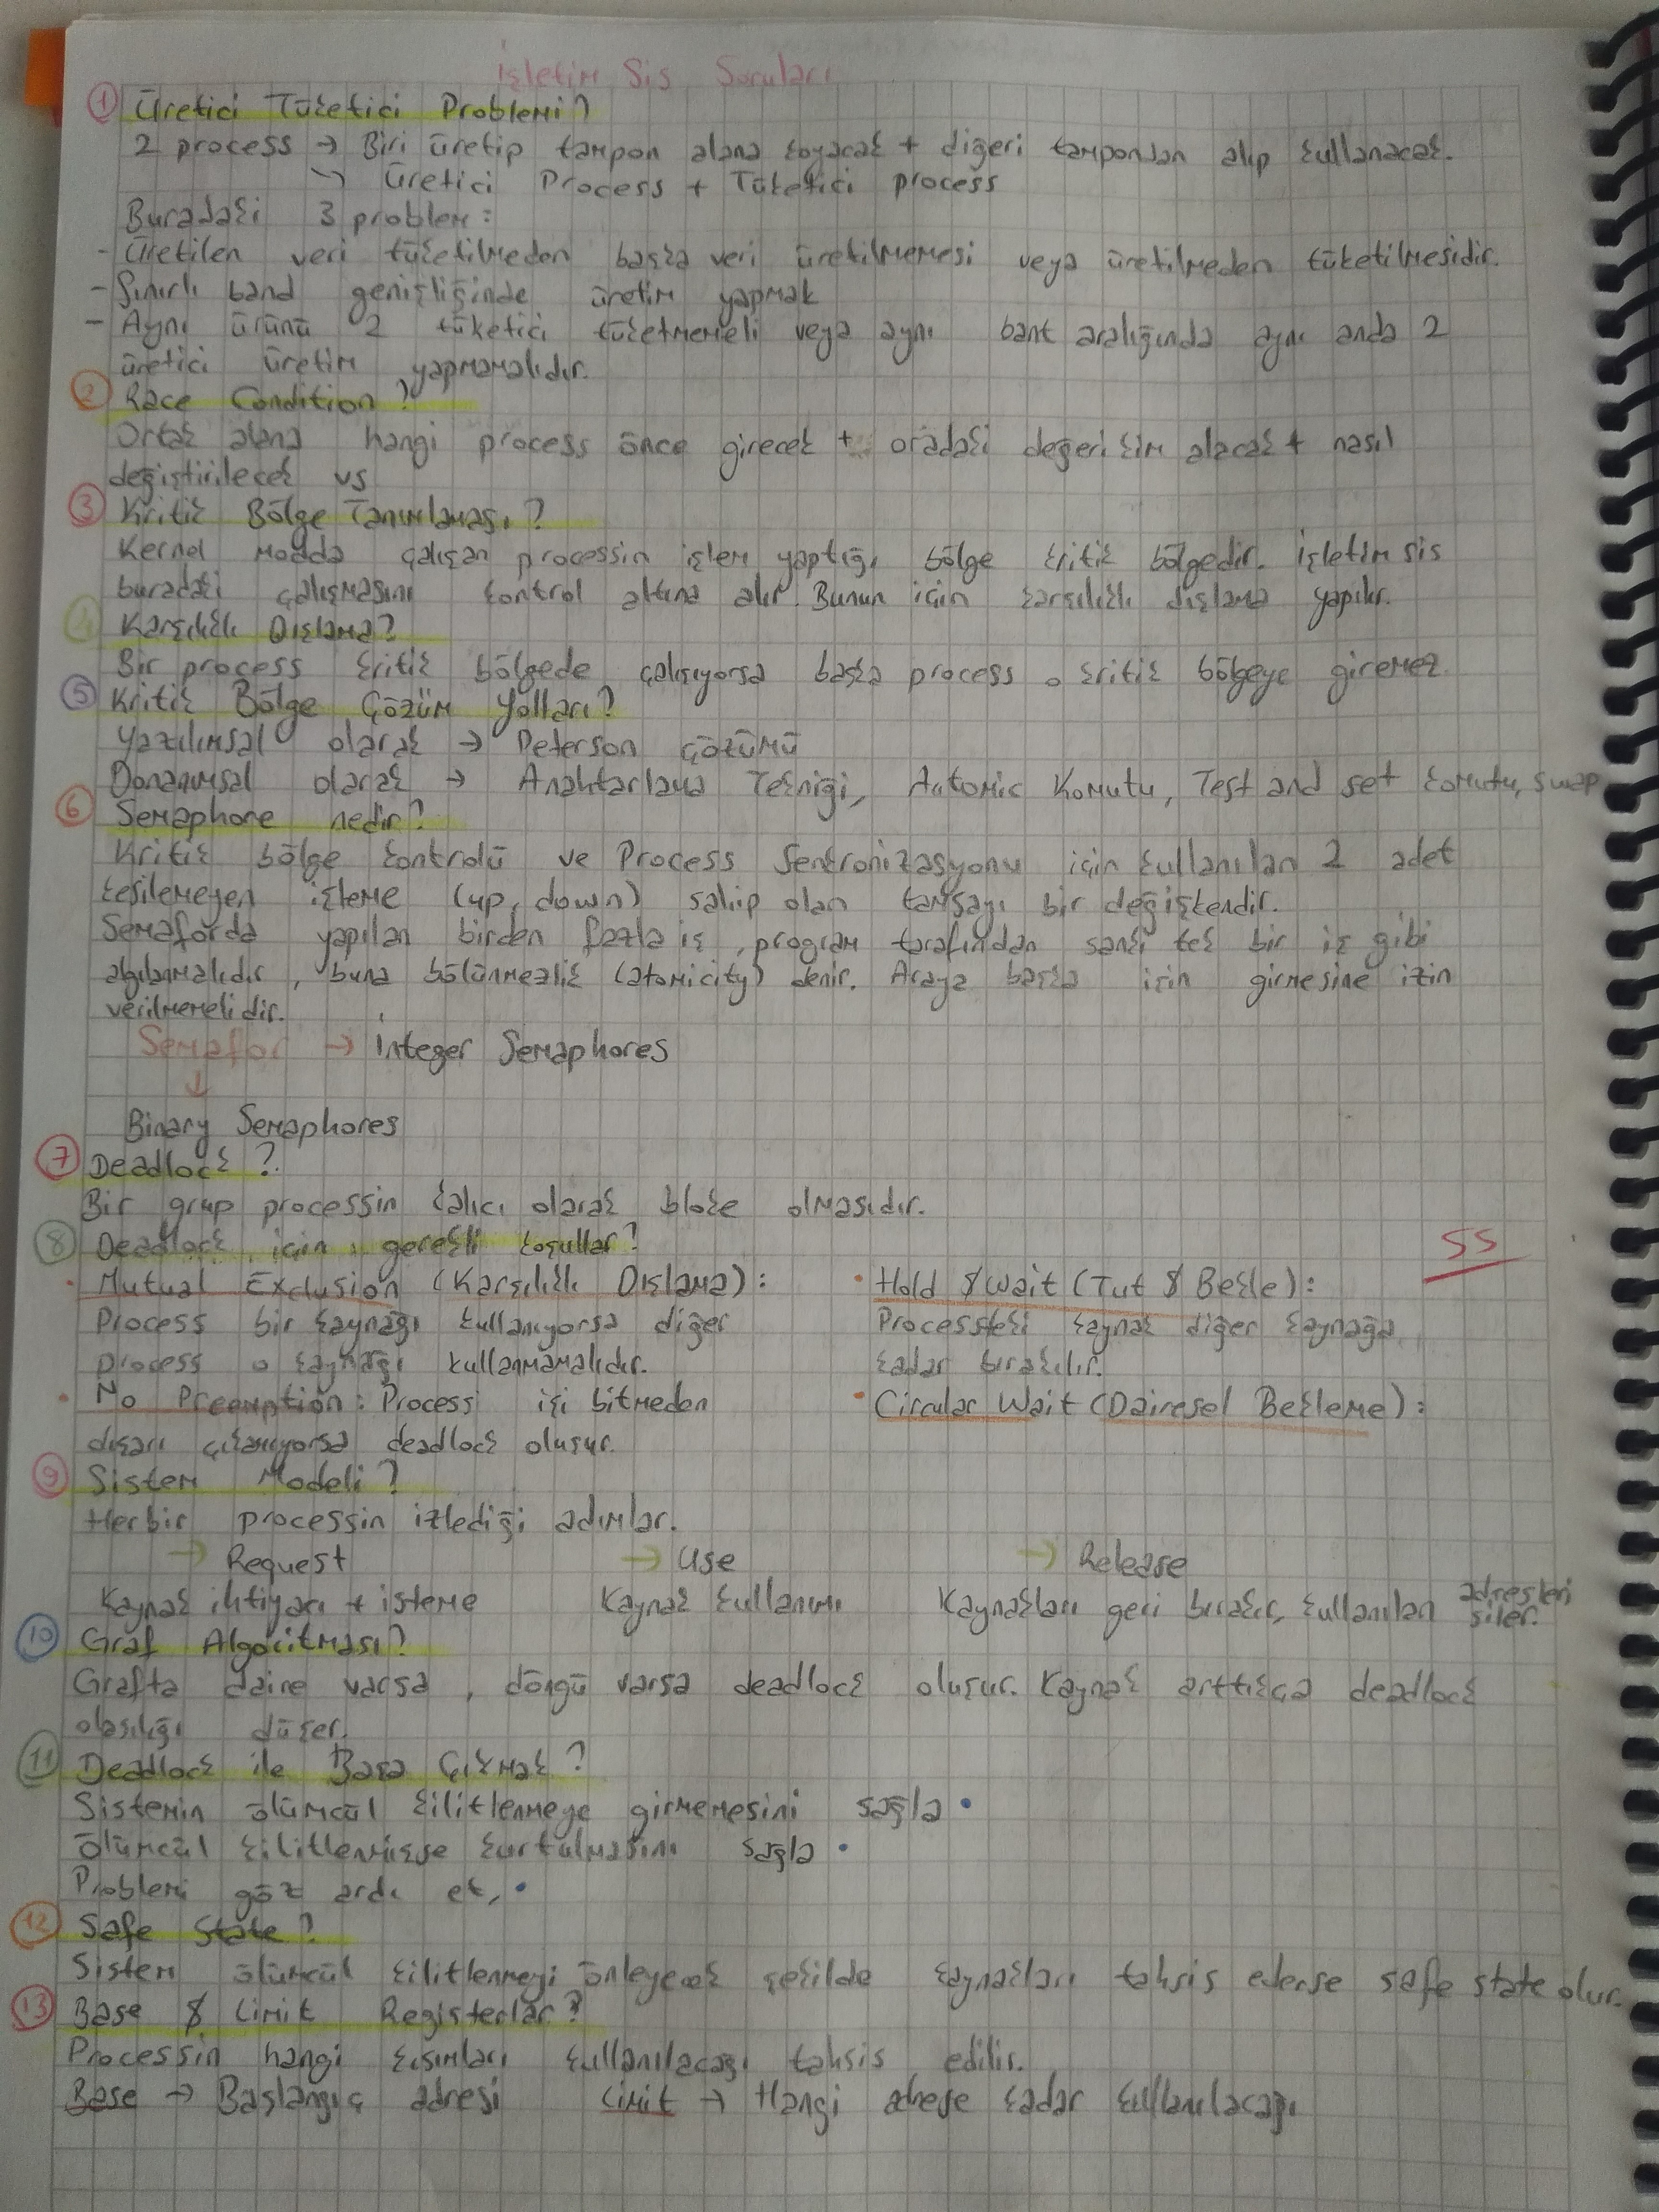 İşletim Sis Soruları
① Üretici Tüketici Problemi?
2 process → Biri üretip tampon alana koyacak + diğeri tampondan alıp kullanacak.
↳ Üretici Process + Tüketici process
Buradaki 3 problem:
- Üretilen veri tüketilmeden başka veri üretilmemesi veya üretilmeden tüketilmesidir.
- Sınırlı band genişliğinde üretim yapmak
- Aynı ürünü 2 tüketici tüketmemeli veya aynı bant aralığında aynı anda 2
üretici üretim yapmamalıdır.
② Race Condition?
Ortak alana hangi process önce girecek + oradaki değeri kim alacak + nasıl
değiştirilecek vs
③ Kritik Bölge Tanımlaması?
Kernel modda çalışan processin işlem yaptığı bölge kritik bölgedir. İşletim sis
buradaki çalışmasını kontrol altına alır. Bunun için karşılıklı dışlama yapılır.
④ Karşılıklı Dışlama?
Bir process kritik bölgede çalışıyorsa başka process o kritik bölgeye giremez
⑤ Kritik Bölge Çözüm Yolları?
Yazılımsal olarak → Peterson çözümü
Donanımsal olarak → Anahtarlama Tekniği, Automic Komutu, Test and set komutu, swap
⑥ Semaphore nedir?
Kritik bölge kontrolü ve Process Senkronizasyonu için kullanılan 2 adet
kesilemeyen işleme (up, down) sahip olan tamsayı bir değişkendir.
Semaforda yapılan birden fazla iş, program tarafından sanki tek bir iş gibi
algılanmalıdır, buna bölünmezlik (atomicity) denir. Araya başka işin girmesine izin
verilmemelidir.
Semafor → Integer Semaphores
↓
Binary Semaphores
⑦ Deadlock?
Bir grup processin kalıcı olarak bloke olmasıdır.
⑧ Deadlock için gerekli koşullar?
SS
• Mutual Exclusion (Karşılıklı Dışlama):
Process bir kaynağı kullanıyorsa diğer
process o kaynağı kullanmamalıdır.
• No Preemption: Process işi bitmeden
dışarı çıkamıyorsa deadlock oluşur.
• Hold & Wait (Tut & Bekle):
Processteki kaynak diğer kaynağa
kadar bırakılır.
• Circular Wait (Dairesel Bekleme):
⑨ Sistem Modeli?
Herbir processin izlediği adımlar.
→ Request → Use → Release
Kaynak ihtiyacı + isteme Kaynak kullanımı Kaynakları geri bırakır, kullanılan adresleri siler.
⑩ Graf Algoritması?
Grafta daire varsa, döngü varsa deadlock oluşur. Kaynak arttıkça deadlock
olasılığı düşer.
⑪ Deadlock ile Başa Çıkmak?
Sistemin ölümcül kilitlenmeye girmemesini sağla •
Ölümcül kilitlenmişse kurtulmasını sağla •
Problemi göz ardı et, •
⑫ Safe State?
Sistem ölümcül kilitlenmeyi önleyecek şekilde kaynakları tahsis ederse safe state olur.
⑬ Base & Limit Registerlar?
Processin hangi kısımları kullanılacağı tahsis edilir.
Base → Başlangıç adresi Limit → Hangi adrese kadar kullanılacağı